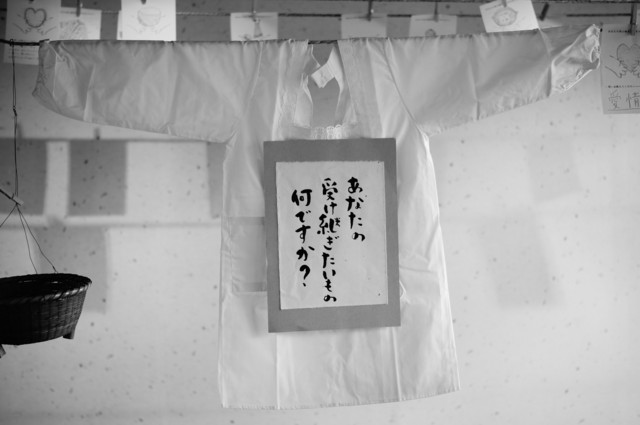 あなたの
受け継ぎたいもの
何ですか?
愛情